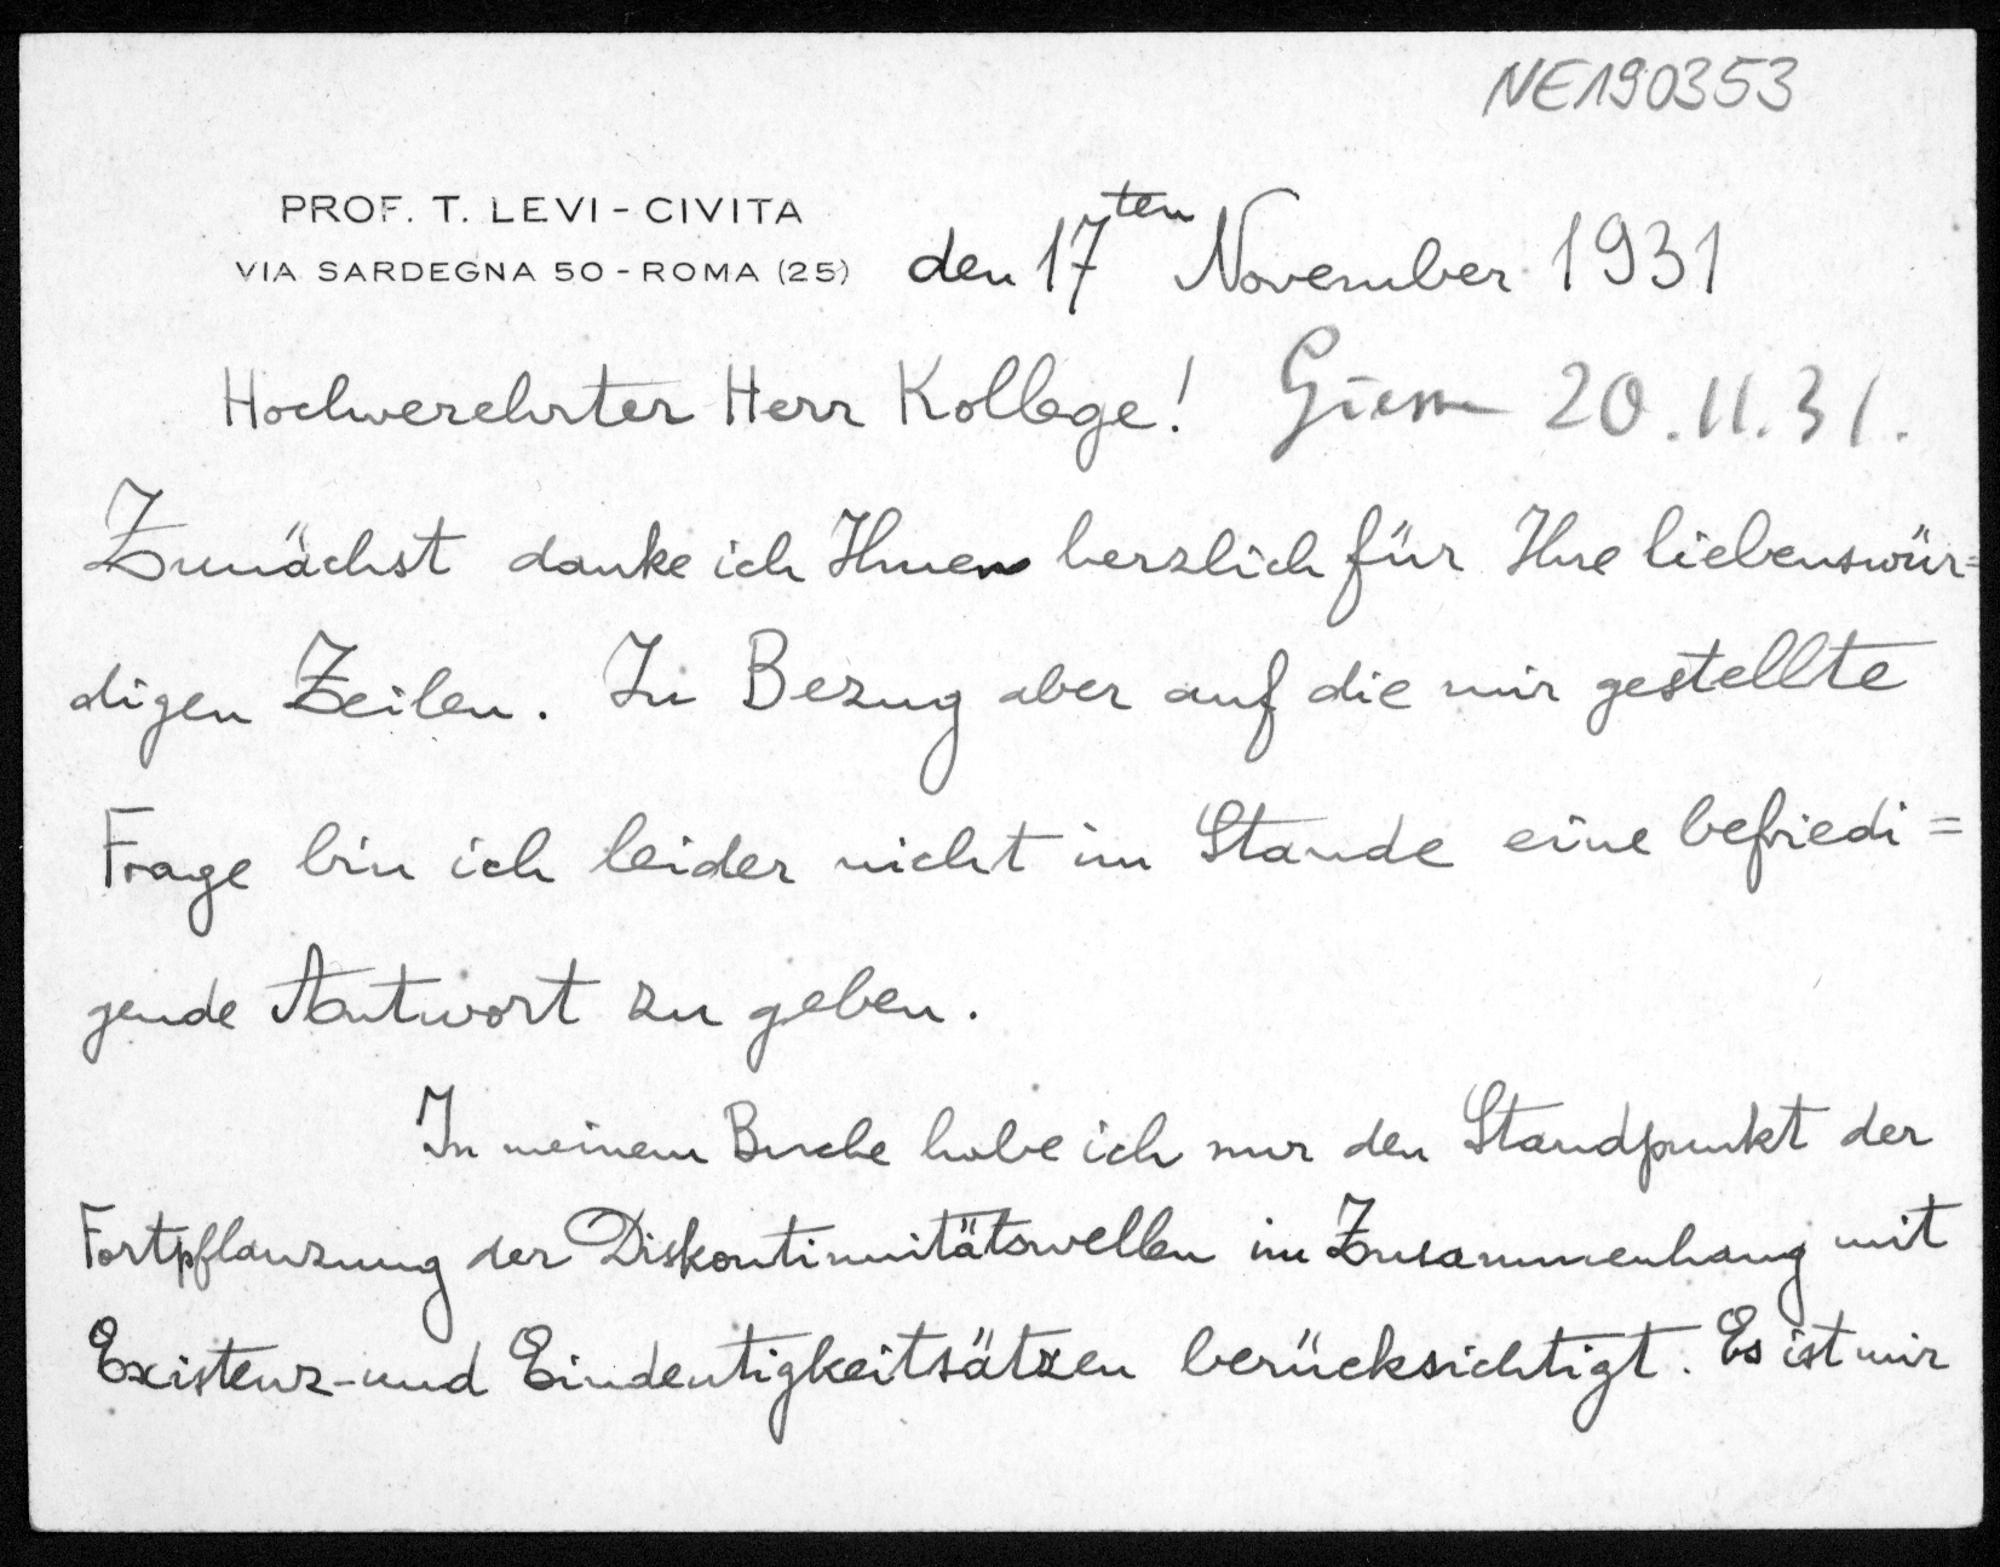 NE190353
PROF. T. LEVI - CIVITA
VIA SARDEGNA 50 - ROMA (25) den 17ten November 1931
Hochverehrter Herr Kollege! 20.11.31.
Zunächst danke ich Ihnen herzlich für Ihre liebenswür=
digen Zeilen. In Bezug aber auf die mir gestellte
Frage bin ich leider nicht im Stande eine befriedi=
gende Antwort zu geben.
In meinem Buche habe ich nur den Standpunkt der
Fortpflanzung der Diskontinuitätswellen im Zusammenhang mit
Existenz- und Eindeutigkeitsätzen berücksichtigt. Es ist mir